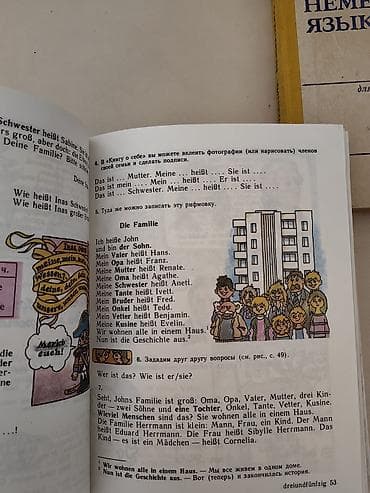 НЕМЕ
ЯЗЫК
Schwester heißt Sabine.
groß, aber doch:
Deine Familie?
Wie heißt Inas
Wie heißt Inas
Marsch
euch!
4. В «Книгу о себе» вы можете вклеить фотографии (или нарисовать) членов
своей семьи и сделать подписи.
Das ist ... Mutter. Meine ... heißt .... Sie ist ....
Das ist mein .... Mein ... heißt .... Er ist ....
Das ist ... Schwester. Meine ... heißt .... Sie ist ....
5. Туда же можно записать эту рифмовку.
Die Familie
Ich heiße John
und bin der Sohn.
Mein Vater heißt Hans.
Mein Opa heißt Franz.
Meine Mutter heißt Renate.
Meine Oma heißt Agathe.
Meine Schwester heißt Anett.
Meine Tante heißt Ivett.
Mein Bruder heißt Fred.
Mein Onkel heißt Tedd.
Mein Vetter heißt Benjamin.
Meine Kusine heißt Evelin.
Wir wohnen alle in einem Haus.¹
Nun ist die Geschichte aus.²
6. Зададим друг другу вопросы (см. рис., с. 49).
Wer ist das? Wie ist er/sie?
7.
Seht, Johns Familie ist groß: Oma, Opa, Vater, Mutter, drei Kin-
der — zwei Söhne und eine Tochter, Onkel, Tante, Vetter, Kusine.
Wieviel Menschen sind das? Sie wohnen alle in einem Haus.
Die Familie Herrmann ist klein: Mann, Frau, ein Kind. Der Mann
heißt Eduard Herrmann. Die Frau heißt Sibylle Herrmann. Das
Kind — es ist ein Mädchen — heißt Cornelia.
¹ Wir wohnen alle in einem Haus. — Мы все живём в одном доме.
² Nun ist die Geschichte aus. — Вот (теперь) и закончилась история.
dreiundfünfzig 53